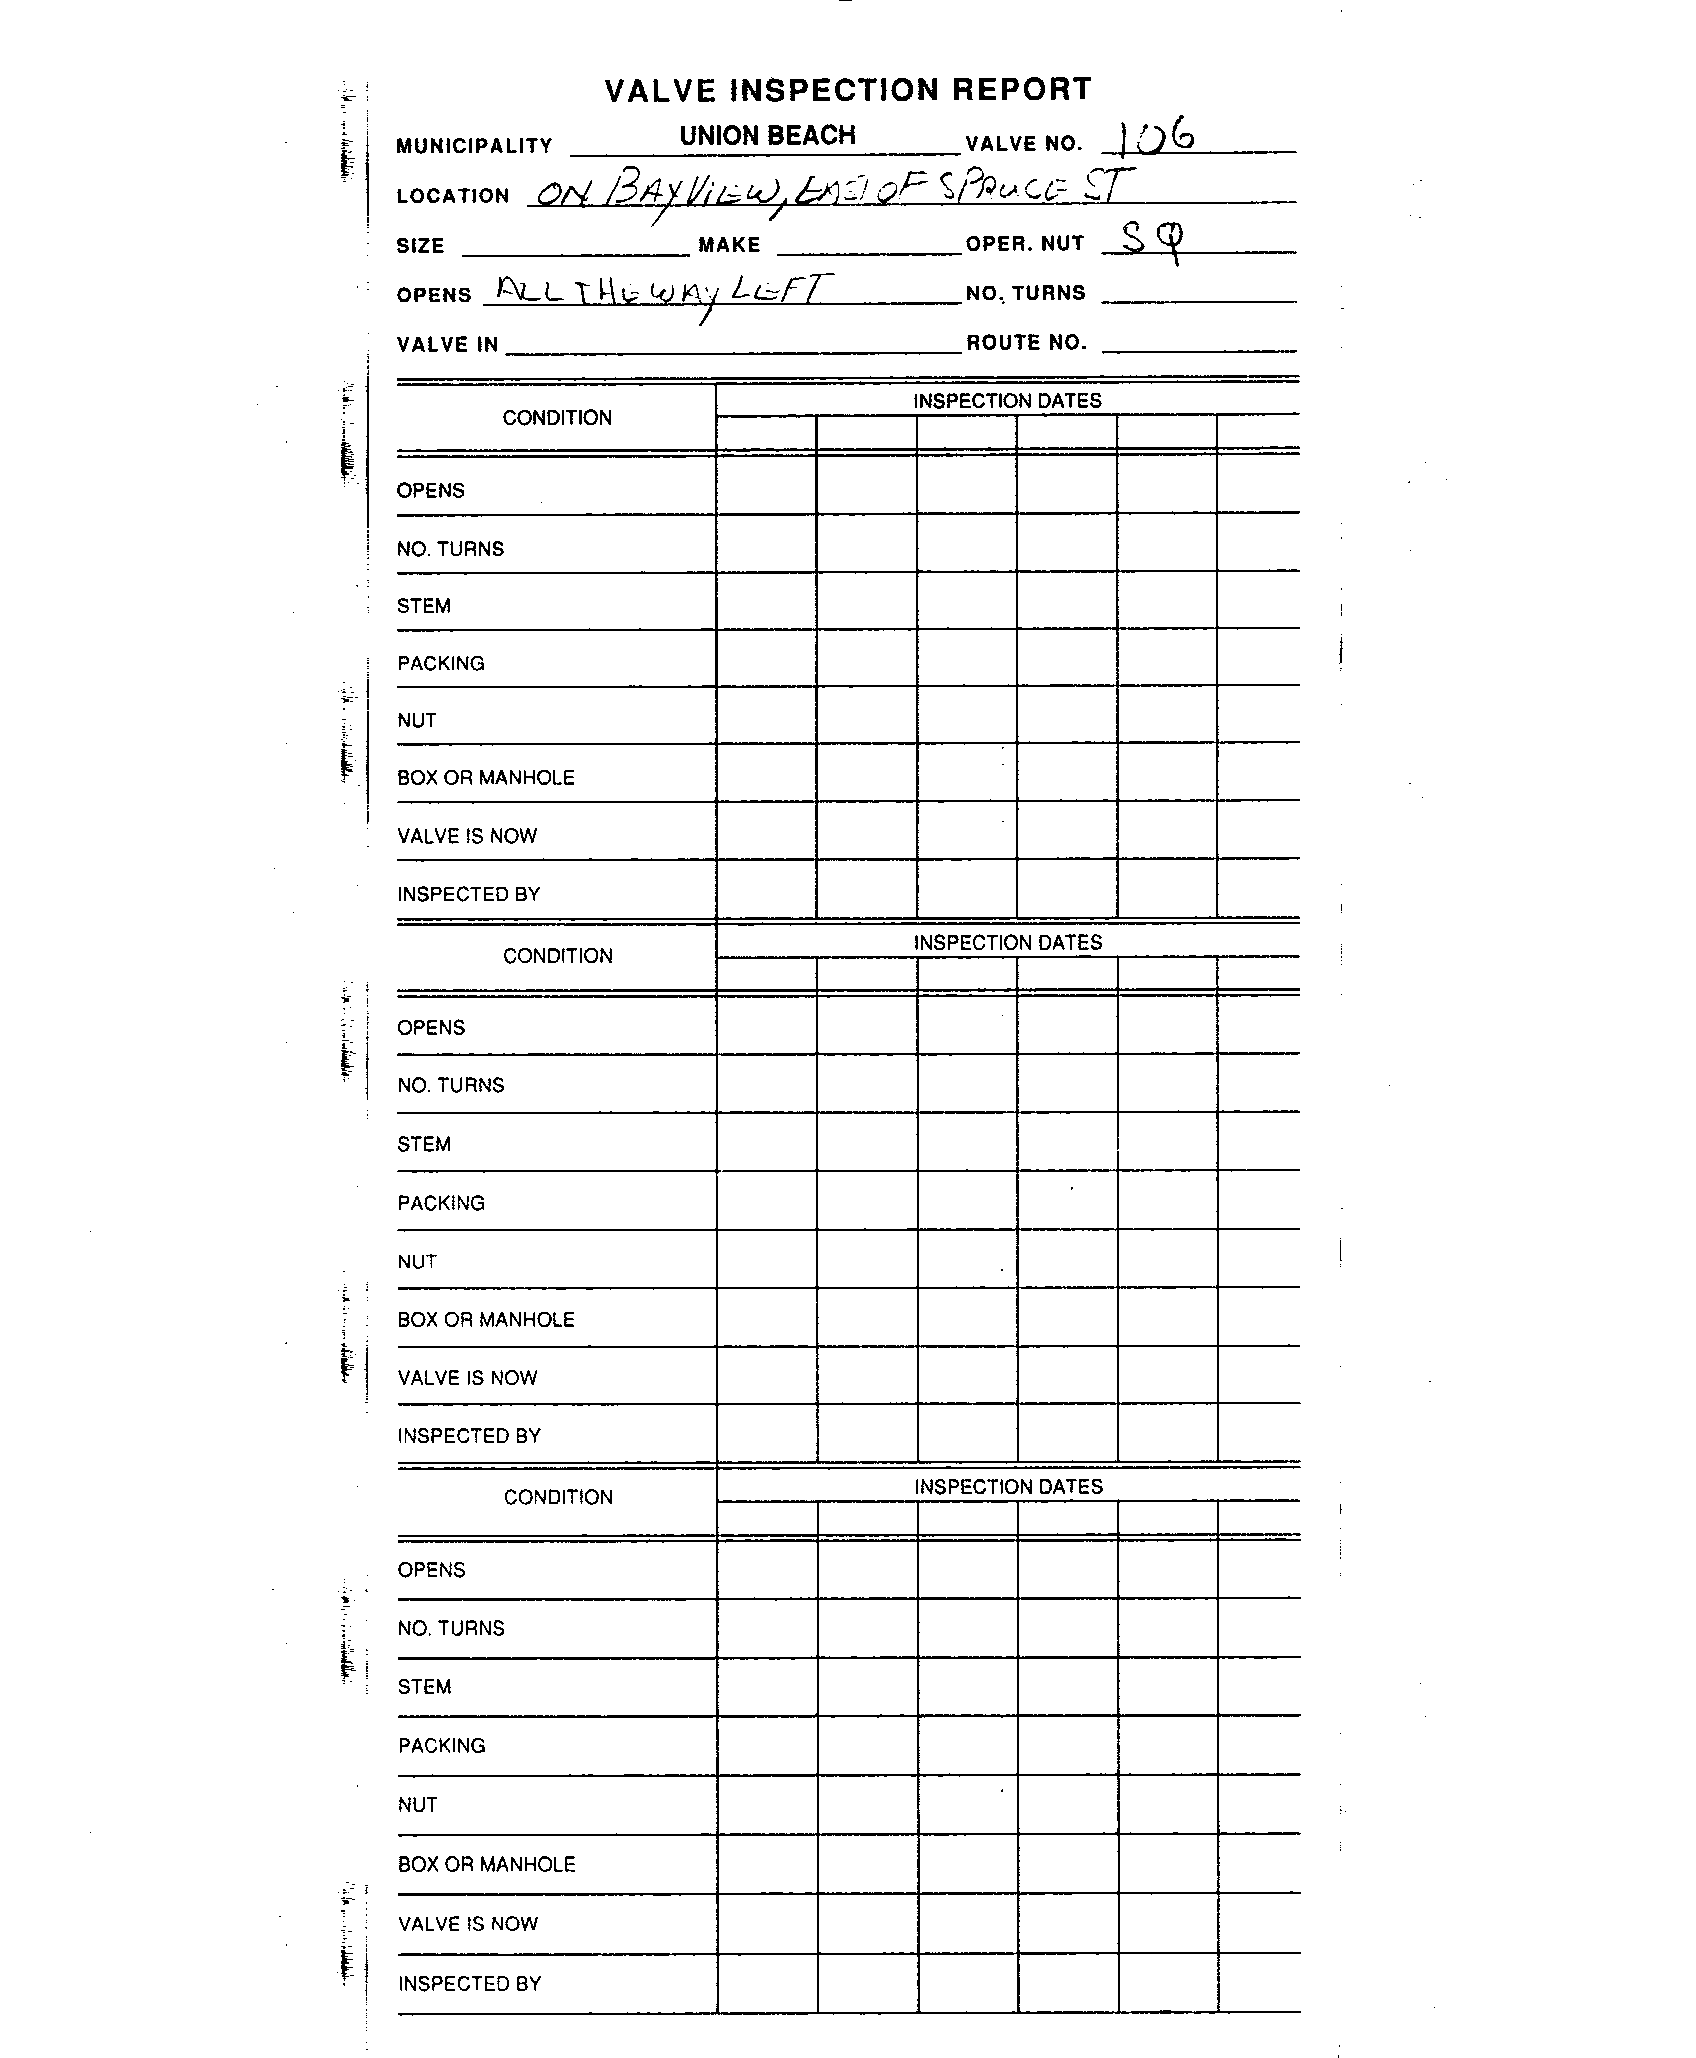 VALVE INSPECTION REPORT
MUNICIPALITY UNION BEACH VALVE NO. 106
LOCATION ON BAYVIEW, EAST OF SPRUCE ST
SIZE MAKE OPER. NUT SQ
OPENS ALL THE WAY LEFT NO. TURNS
VALVE IN ROUTE NO.
CONDITION INSPECTION DATES
OPENS
NO. TURNS
STEM
PACKING
NUT
BOX OR MANHOLE
VALVE IS NOW
INSPECTED BY
CONDITION INSPECTION DATES
OPENS
NO. TURNS
STEM
PACKING
NUT
BOX OR MANHOLE
VALVE IS NOW
INSPECTED BY
CONDITION INSPECTION DATES
OPENS
NO. TURNS
STEM
PACKING
NUT
BOX OR MANHOLE
VALVE IS NOW
INSPECTED BY